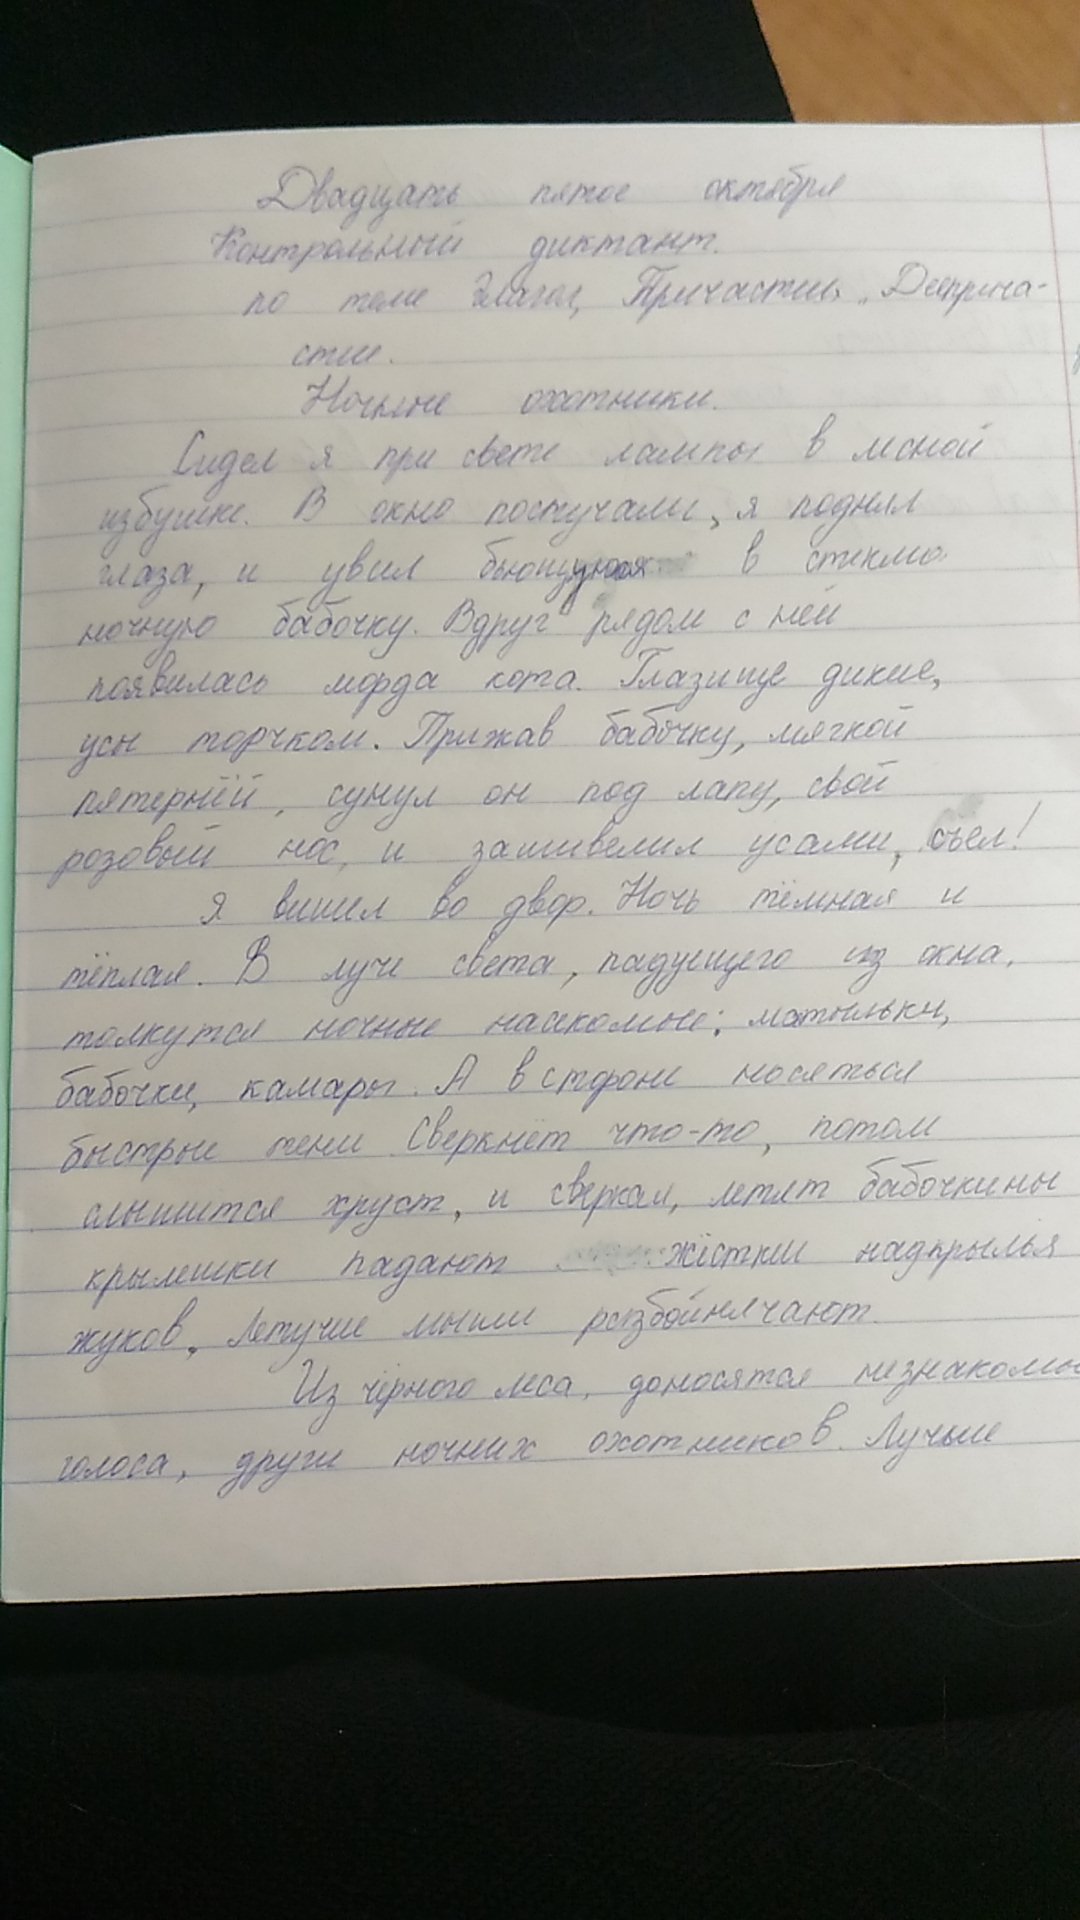 Двадцать пятое октября
Контрольный диктант.
по теме Глагол, Причастие, Дееприча-
стие.
Ночные охотники.
Сидел я при свете лампы в лесной
избушке. В окно постучали, я поднял
глаза, и увил бьющуюся в стекло
ночную бабочку. Вдруг рядом с ней
появилась морда кота. Глазище дикие,
усы торчком. Прижав бабочку, мягкой
пятернёй, сунул он под лапу, свой
розовый нос, и зашивелил усами, съел!
Я вышел во двор. Ночь тёмная и
тёплая. В луче света, падующего из окна,
толкутся ночные насекомые; мотыльки,
бабочки, камары. А в стороне носяться
быстрые тени. Сверкнёт что-то, потом
слышится хруст, и сверкая, летят бабочкины
крылешки падают жёсткии надкрылья
жуков, Летучие мыши разбойнячают.
Из чёрного леса, доносятся незнакомы
голоса, други ночних охотников. Лучьше